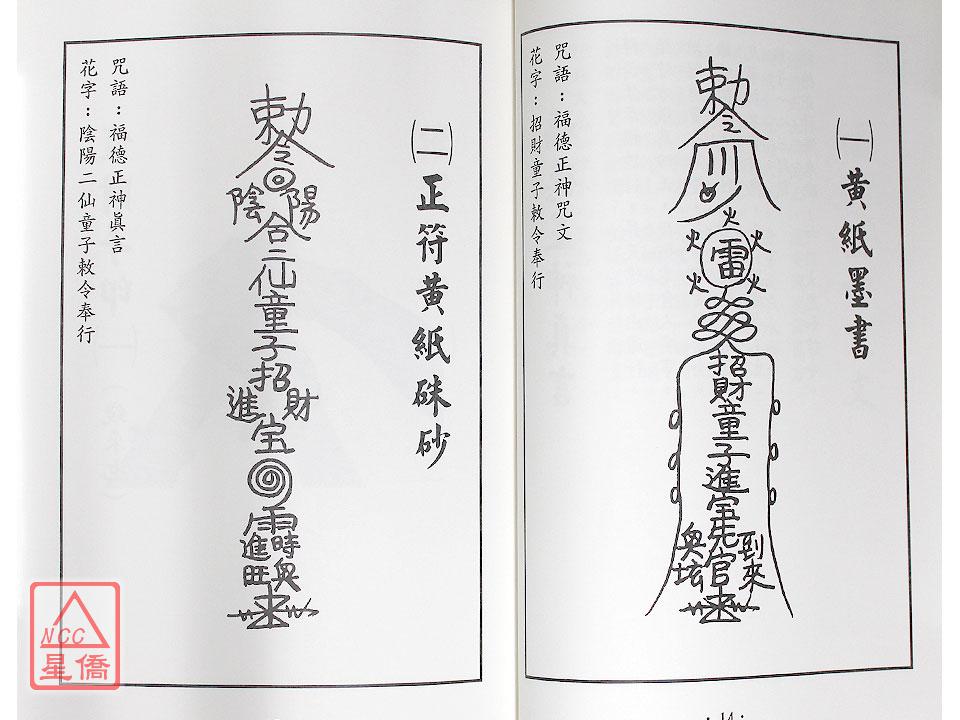 ㈠黃紙墨書
勅令
雷
火火火火火
招財童子進宝
先官
到來
興壇
咒語：福德正神咒文
花字：招財童子敕令奉行
14
㈡正符黃紙硃砂
勅令
陰陽
合二仙童子招
進財
宝
時興
進旺
咒語：福德正神眞言
花字：陰陽二仙童子敕令奉行
NCC
星僑